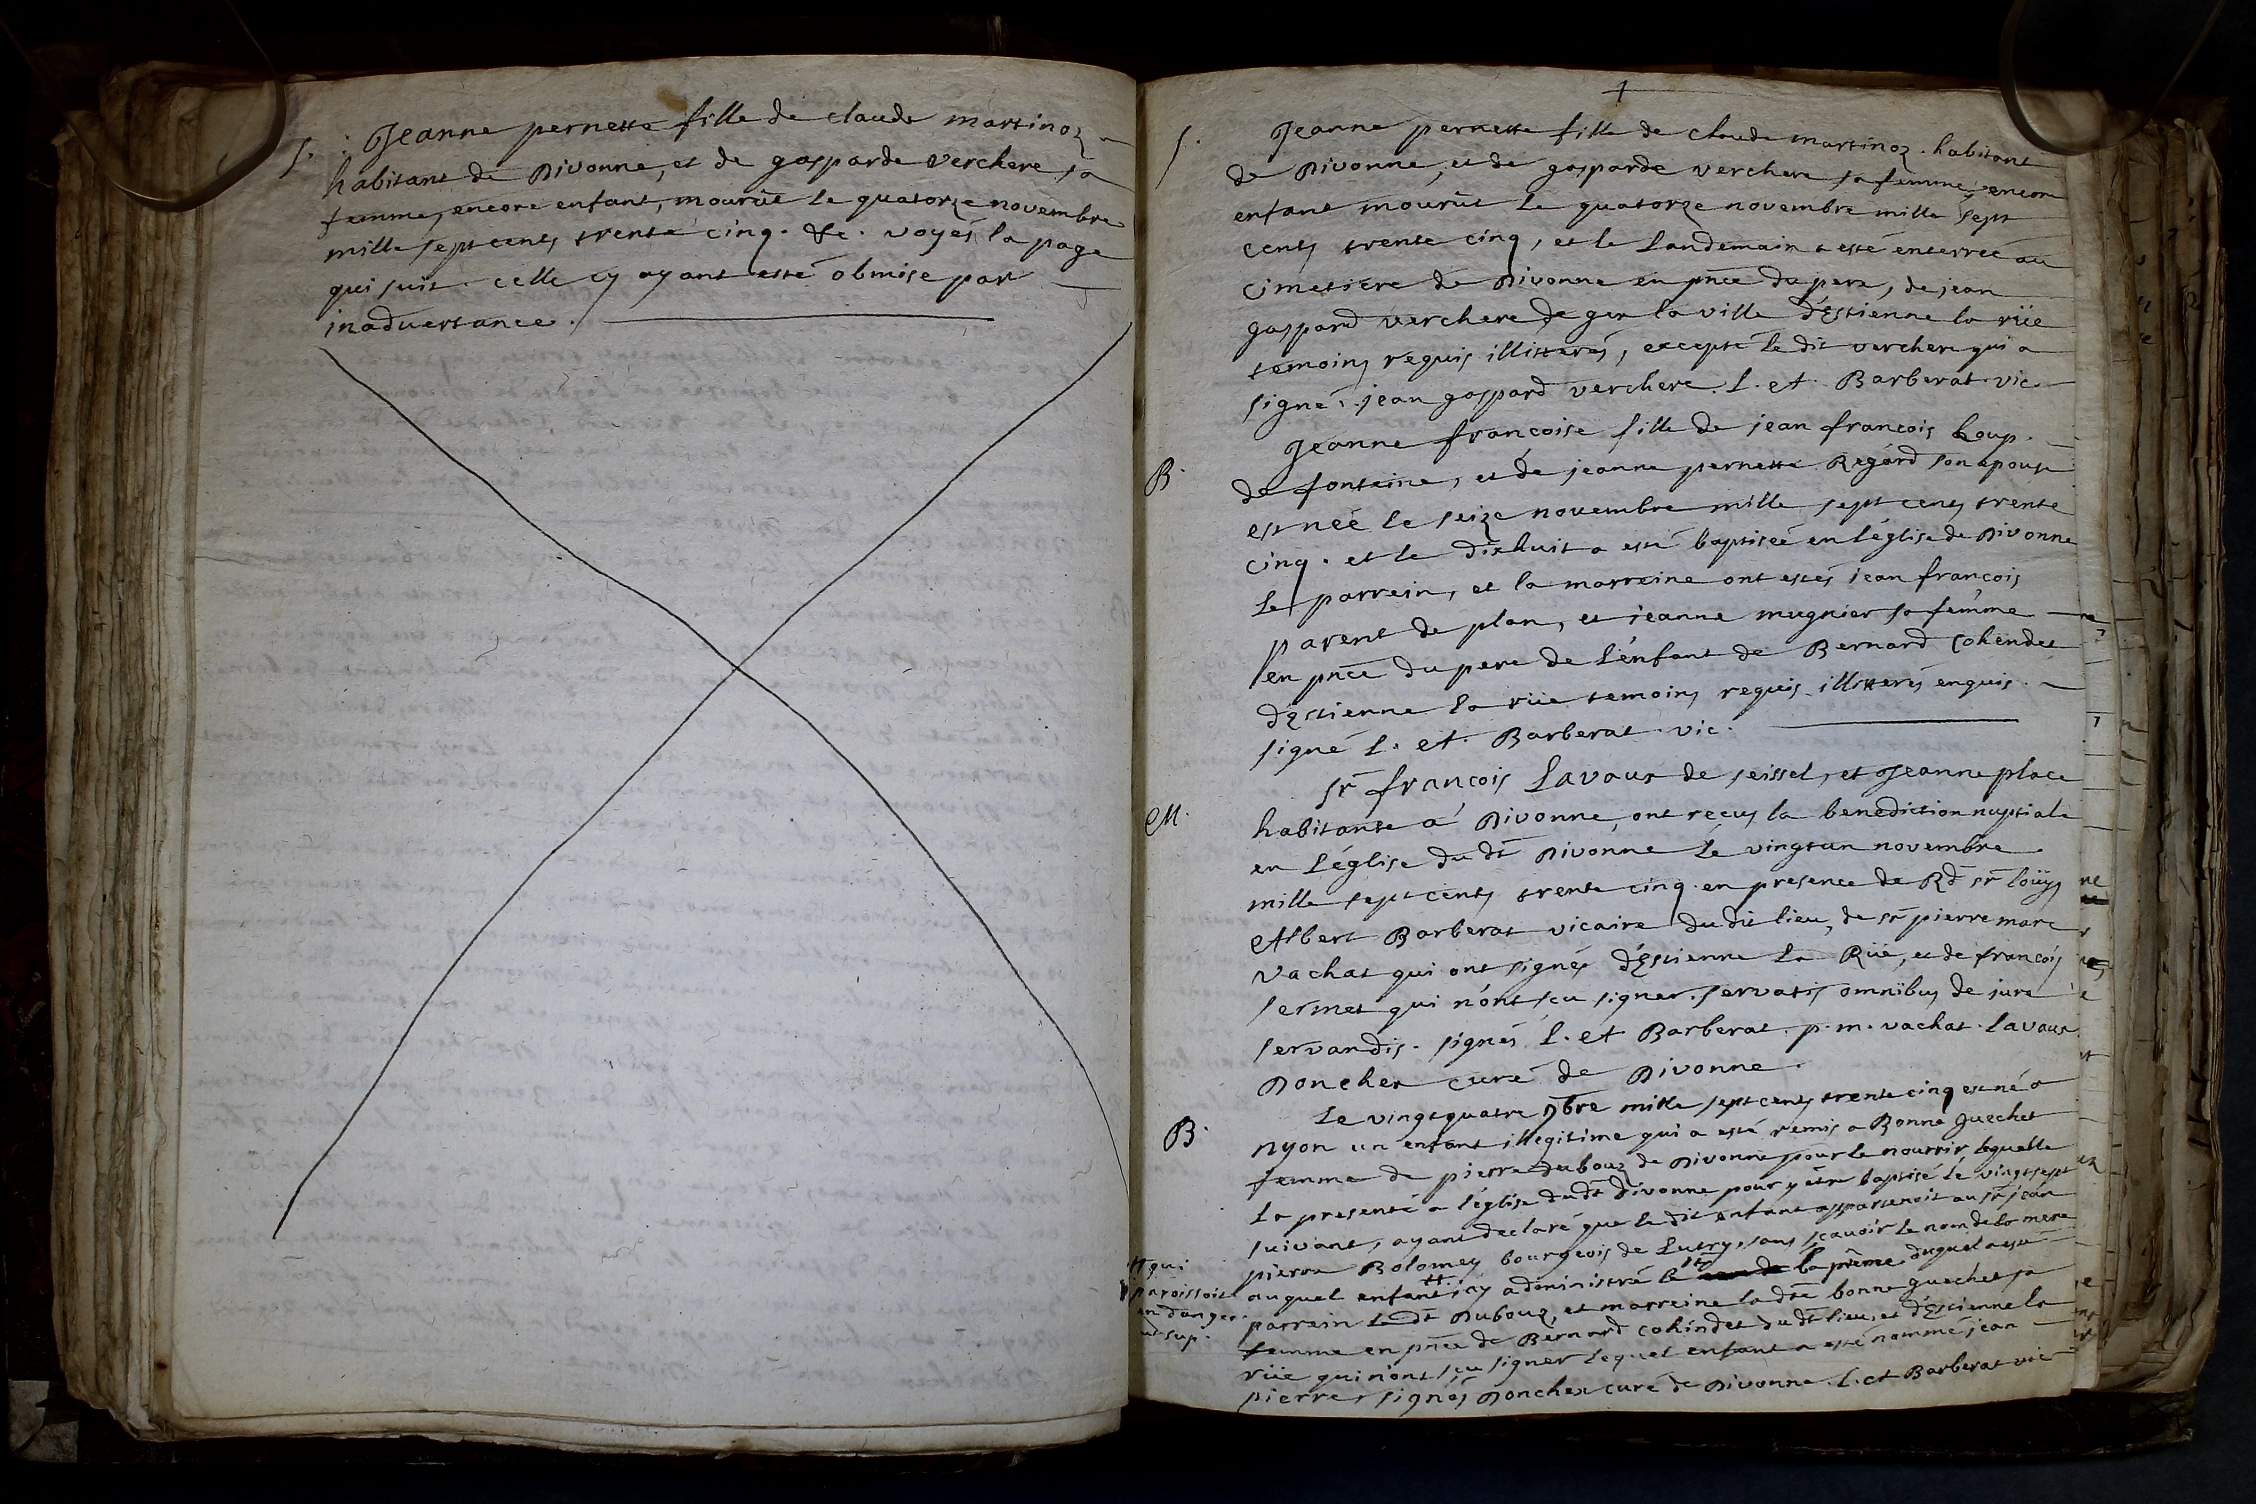 S. Jeanne pernette fille de claude martinoz
habitant de Divonne, et de gasparde verchere sa
femme, encore enfant, mourût le quatorze novembre
mille sept cents trente cinq. &c. voyés la page
qui suit. celle cy ayant esté obmise par
inadvertance.
S. Jeanne pernette fille de claude martinoz. habitant
de Divonne, et de gasparde verchere sa femme, encore
enfant mourût le quatorze novembre mille sept
cents trente cinq, et le landemain a esté enterreé au
cimetiére de Divonne en pnce du pere, de jean
gaspard verchere de gex la ville d'Estienne la rüe
temoins requis illitterés, excepté le dit verchere qui a
signé. jean gaspard verchere. L. A. Barberat vic.
B. Jeanne francoise fille de jean francois houp.
de fonteine, et de jeanne pernette Regard son epouse
est neé le seize novembre mille sept cents trente
cinq. et le dixhuit a esté baptiseé en l'église de Divonne
le parrein, et la marreine ont estés jean francois
parent de plan, et jeanne mugnier sa femme
en pnce du pere de l'enfant de Bernard Cohendet
d'Estienne la rüe temoins requis illitterés enquis.
signé L. A. Barberat. vic.
M. Sr francois Lavaux de seissel, et Jeanne place
habitante a Divonne, ont reçus la benediction nuptiale
en l'église du dt Divonne le vingtun novembre
mille sept cents trente cinq. en presence de Rd sr loüys
Albert Barberat vicaire du dit lieu, de sr pierre marc
vachat qui ont signés d'Estienne la Rüe, et de francois
sermet qui n'ont scu signer. servatis omnibus de jure
servandis. signés L. A Barberat. p. m. vachat. Lavaux
Doncher curé de Divonne.
B. Le vingtquatre 9bre mille sept cents trente cinq est né a
nyon un enfant illegitime qui a esté remis a Bonne Guechet
femme de pierre dubouz de Divonne pour le nourrir, laquelle
la presenté a l'église du dt Divonne pour y être baptisé le vingtsept
suivant, ayant declaré que le dit enfant appartenoit au sr jean
pierre Bolomey bourgeois de Lutry, sans scavoir le nom de la mere
auquel enfant # jay administré le st bapteme duquel a esté
# qui
paroissoit
en danger
ut sup.
parrein le dt Dubouz, et marreine la dte bonne guechet sa
femme en pnce de Bernard cohindet du dt lieu, et d'Estienne la
rüe qui n'ont scu signer lequel enfant a esté nommé jean
pierre signés Doncher curé de Divonne. L. A Barberat vic